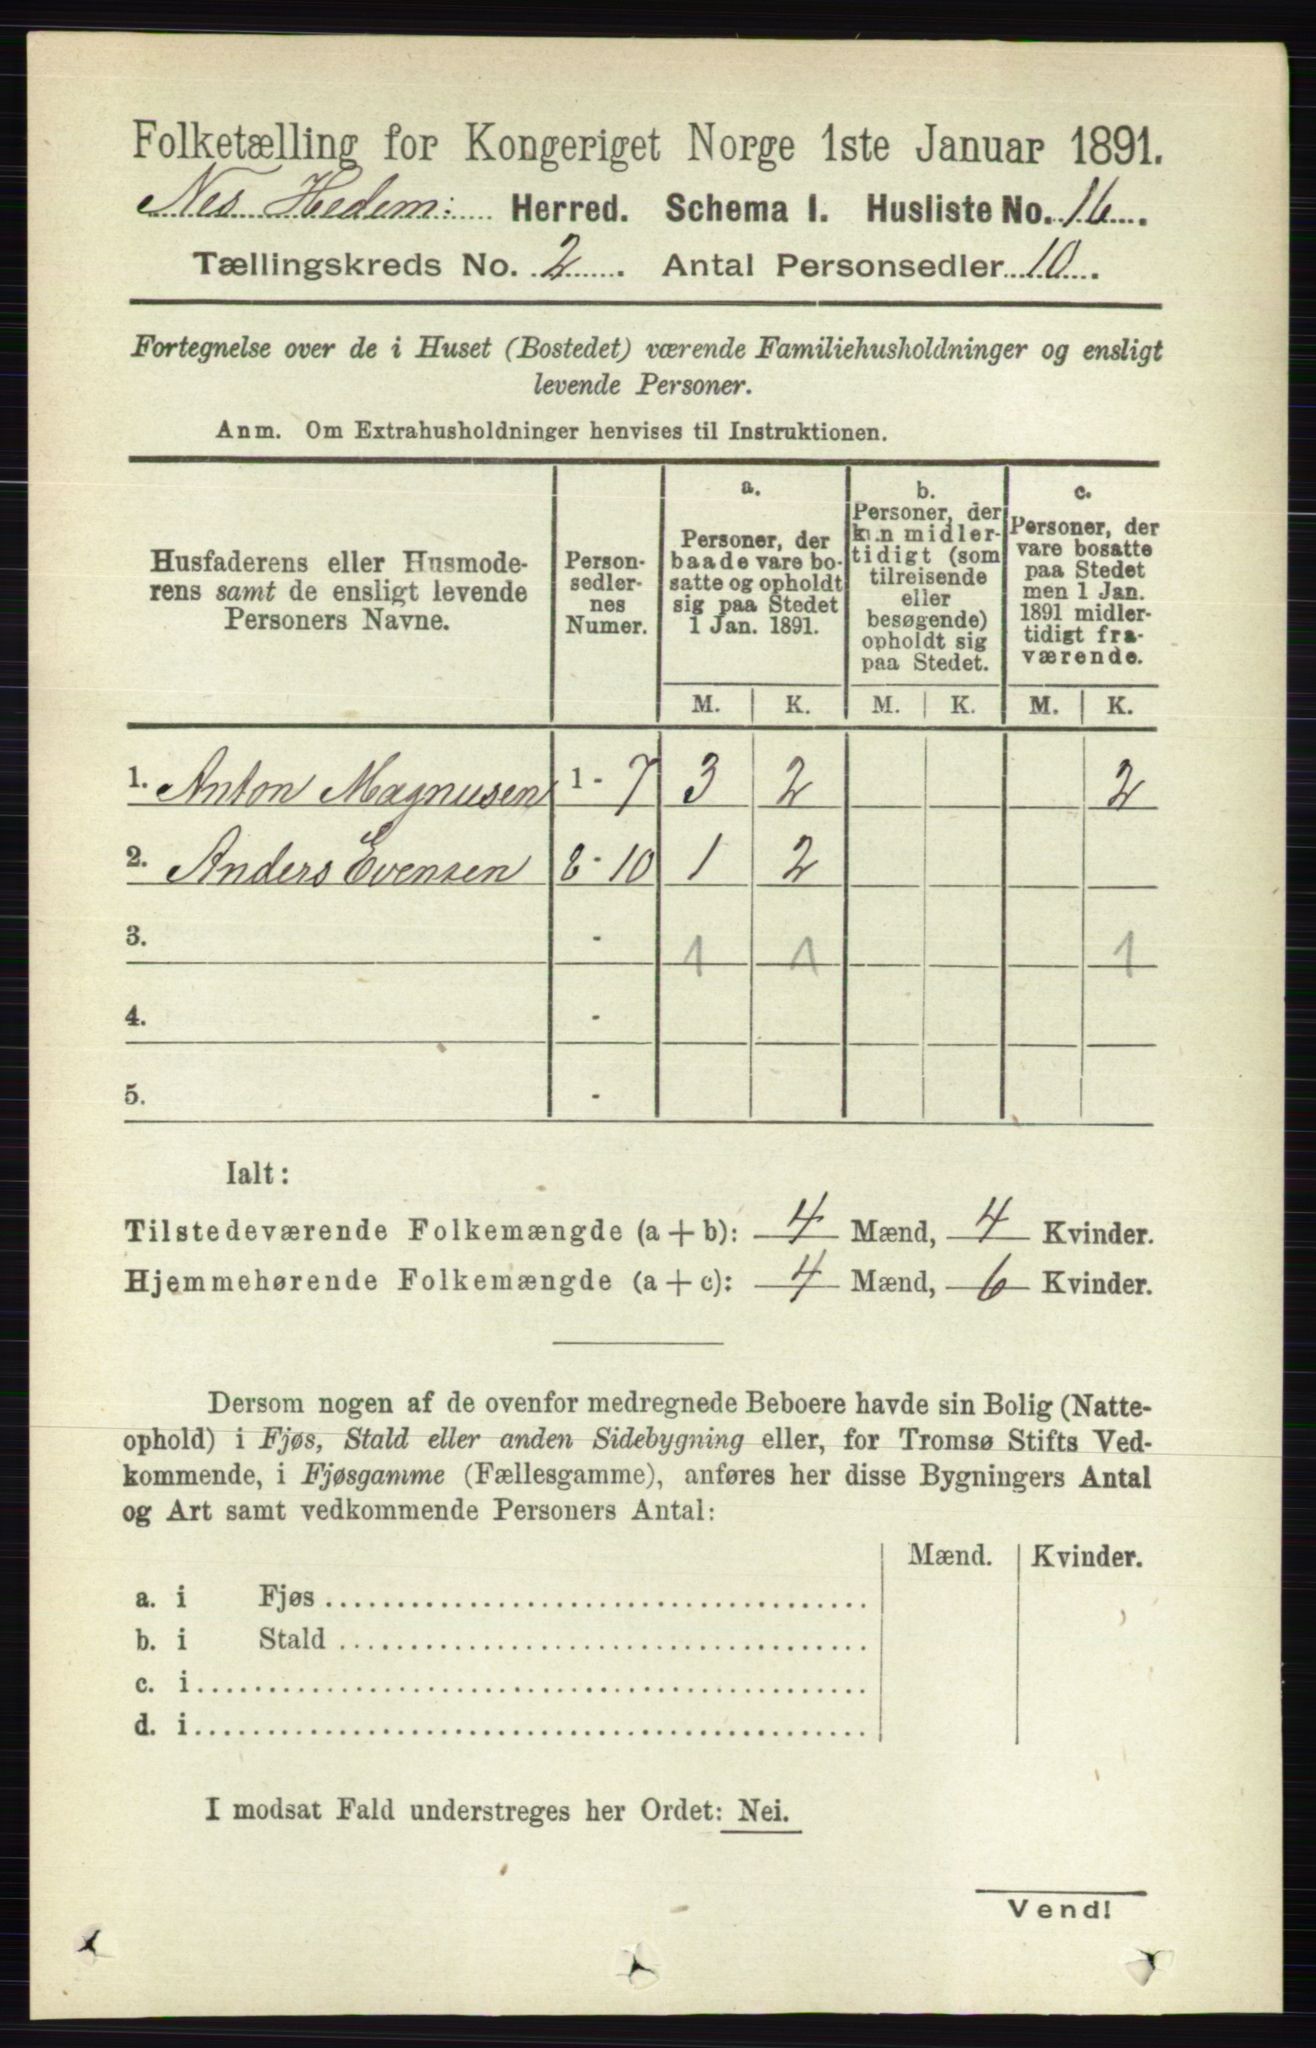 Folketælling for Kongeriget Norge 1ste Januar 1891.
Nes Hedem: Herred. Schema I. Husliste No. 16.
Tællingskreds No. 2. Antal Personsedler 10.
Fortegnelse over de i Huset (Bostedet) værende Familiehusholdninger og ensligt
levende Personer.
Anm. Om Extrahusholdninger henvises til Instruktionen.
Husfaderens eller Husmode-
rens samt de ensligt levende
Personers Navne.
Person-
sedler-
nes
Numer.
a.
Personer, der
baade vare bo-
satte og opholdt
sig paa Stedet
1 Jan. 1891.
b.
Personer, der
kun midler-
tidigt (som
tilreisende
eller
besøgende)
opholdt sig
paa Stedet.
c.
Personer, der
vare bosatte
paa Stedet
men 1 Jan.
1891 midler-
tidigt fra-
værende.
M. K. M. K. M. K.
1. Anton Magnusen 1 - 7 3 2 2
2. Anders Evensen 8 - 10 1 2
3. - 1 1 1
4. -
5. -
Ialt:
Tilstedeværende Folkemængde (a + b): 4 Mænd, 4 Kvinder.
Hjemmehørende Folkemængde (a + c): 4 Mænd, 6 Kvinder.
Dersom nogen af de ovenfor medregnede Beboere havde sin Bolig (Natte-
ophold) i Fjøs, Stald eller anden Sidebygning eller, for Tromsø Stifts Ved-
kommende, i Fjøsgamme (Fællesgamme), anføres her disse Bygningers Antal
og Art samt vedkommende Personers Antal:
Mænd. Kvinder.
a. i Fjøs
b. i Stald
c. i
d. i
I modsat Fald understreges her Ordet: Nei.
Vend!